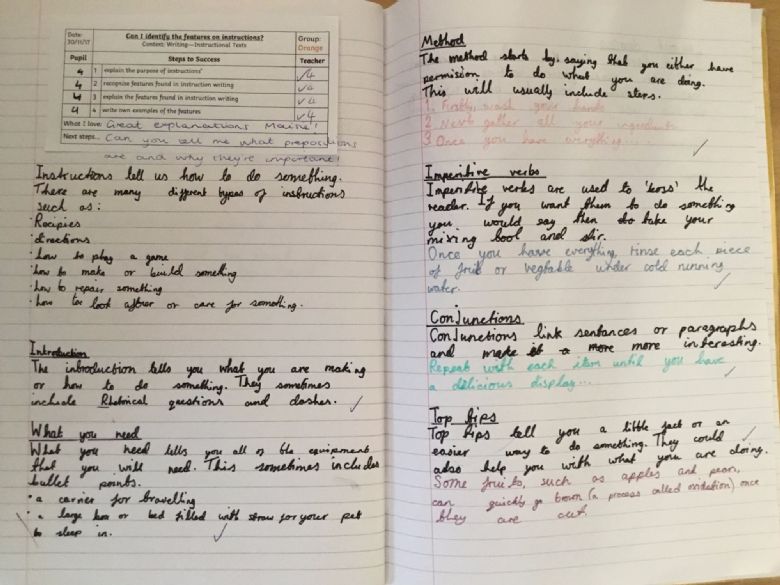 Date:
30/11/17
Can I identify the features on instructions?
Context: Writing—Instructional Texts
Group:
Orange
Pupil
Steps to Success
Teacher
4 1 explain the purpose of instructions' ✓4
4 2 recognise features found in instruction writing ✓4
4 3 explain the features found in instruction writing ✓4
4 4 write own examples of the features ✓4
What I love: Great explanations
Next steps: Can you tell me what prepositions
are and why they're important!
Instructions tell us how to do something.
There are many different types of instructions
such as:
Recipies
·directions
·how to play a game
·how to make or build something
·how to repair something
·how to look after or care for something.
Introduction
The introduction tells you what you are making
or how to do something. They sometimes
include Rhetorical questions and dashes. ✓
What you need
What you need tells you all of the equipment
that you will need. This sometimes includes
bullet points.
• a carrier for travelling
• a large box or bed filled with straw for your pet
to sleep in. ✓
Method
The method starts by saying that you either have
permission to do what you are doing.
This will usually include steps.
1. Firstly, wash your hands
2. Next gather all your ingredients
3. Once you have everything.... ✓
Imperitive verbs
Imperitive verbs are used to 'boss' the
reader. If you want them to do something
you would say then to take your
mixing bowl and stir.
Once you have everything, rinse each piece
of fruit or vegtable under cold running
water. ✓
Conjunctions
Conjunctions link sentences or paragraphs
and make it more more interesting.
Repeat with each item until you have
a delicious display... ✓
Top tips
Top tips tell you a little fact or an
easier way to do something. They could ✓
also help you with what you are doing.
Some fruits, such as apples and pears,
can quickly go brown (a process called oxidation) once
they are cut.